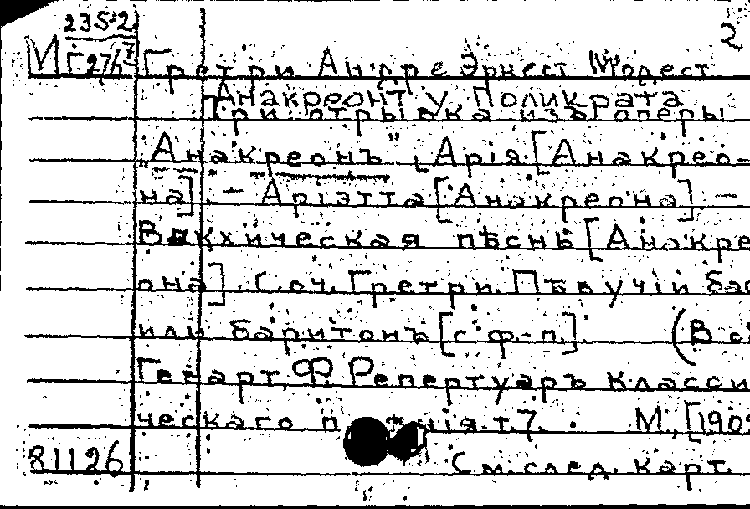 2352
2
М Г 27/
Гретри Андре Эрнест Модест
Анакреонт у Поликрата
Три отрывка изъ оперы
„Анакреонъ“, Арія [Анакрео-
на]. – Аріэтта [Анакреона] –
Вакхическая пѣснь [Анакре
она]. Соч. Гретри. Пѣвучій бас
или баритонъ [с ф.-п.]. (В
Гегарт, Ф. Репертуаръ класси
ческаго п нія. т. 7. М., [190
81126
См. след. карт.